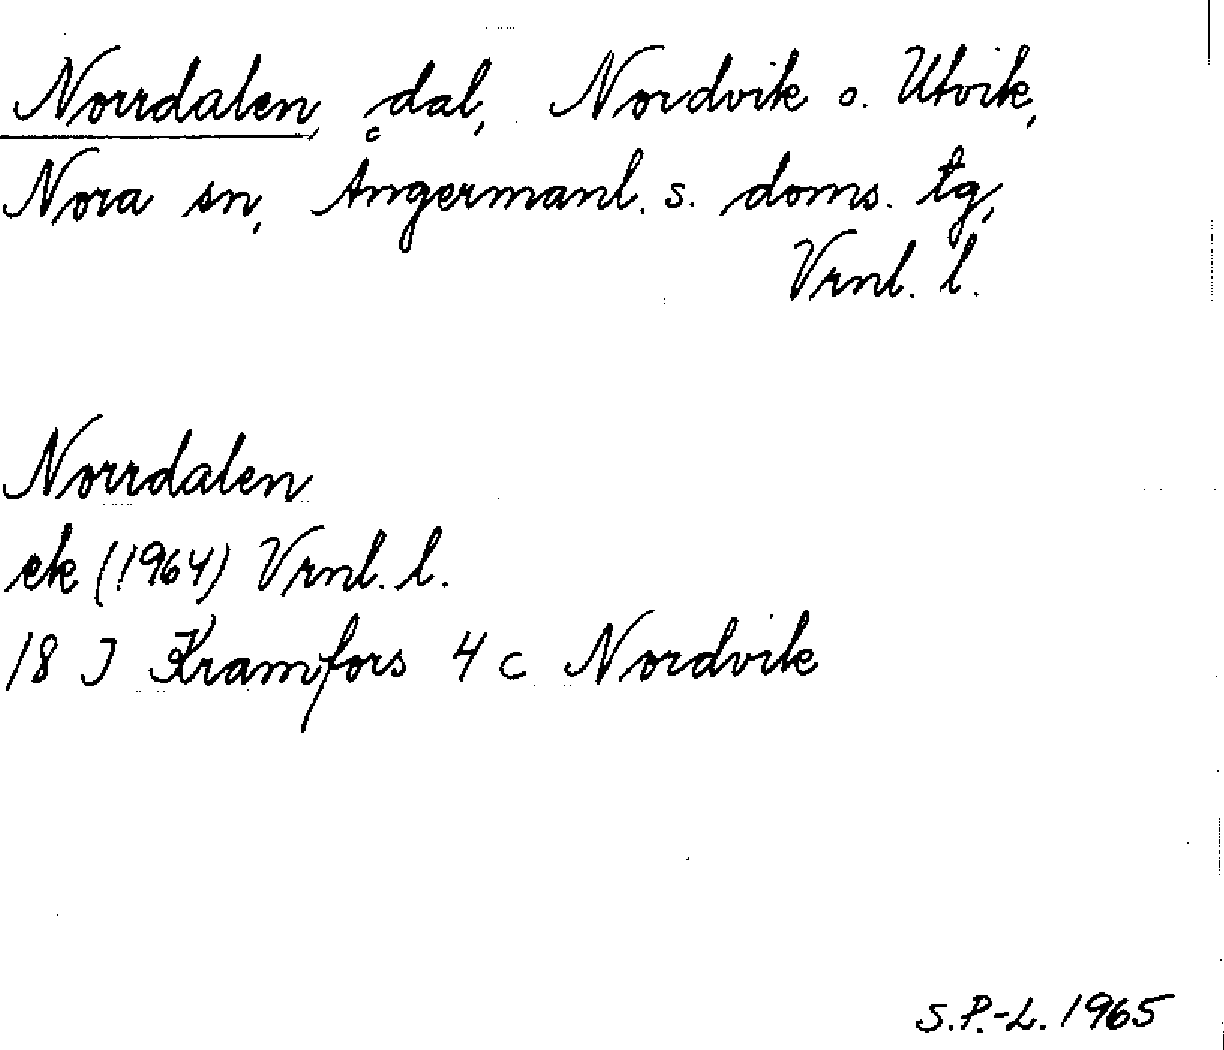 Norrdalen, dal, Nordvik o. Utvik,
Nora sn, Ångermanl. s. doms. tg,
Vrnl. l.
Norrdalen
ek (1964) Vrnl. l.
18 J Kramfors 4 c Nordvik
S.P.-L. 1965